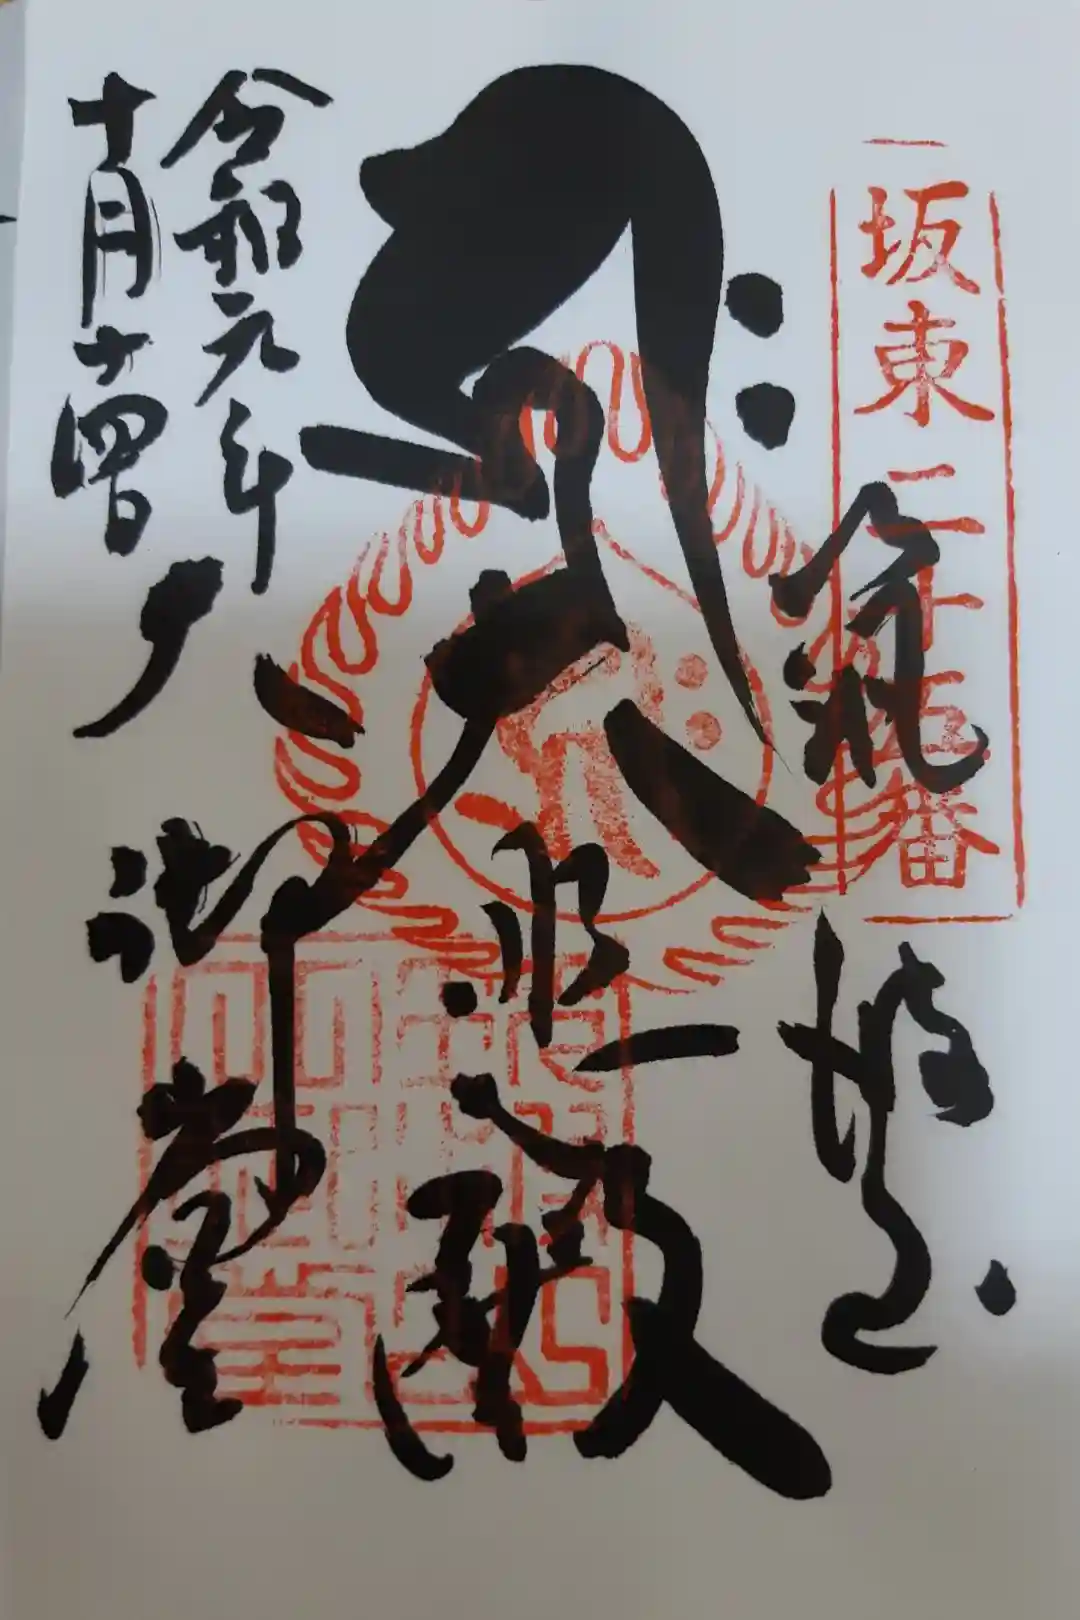 坂東二十五番
筑波山
大悲殿
大御堂
令和元年
十月十四日